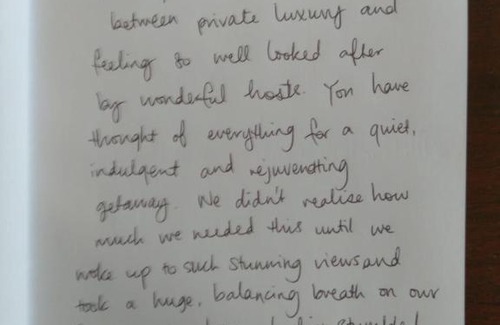 between private luxury and
feeling so well looked after
by wonderful hosts. You have
thought of everything for a quiet,
indulgent and rejuvenating
getaway. We didn't realise how
much we needed this until we
woke up to such stunning views and
took a huge, balancing breath on our